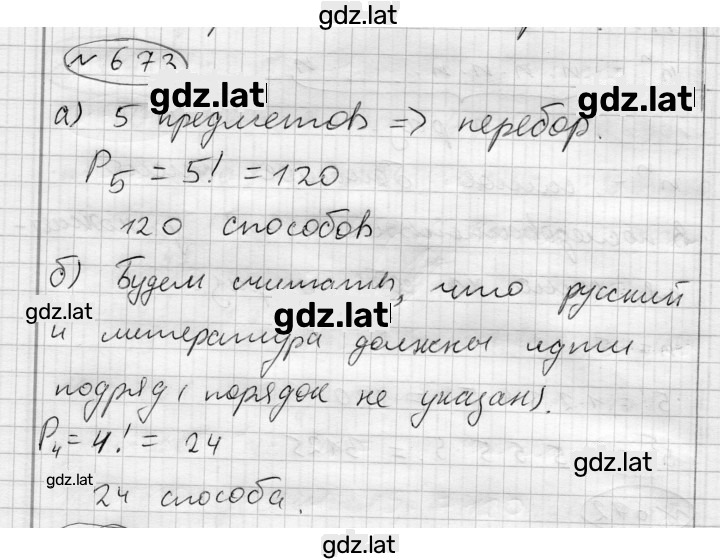 gdz.lat
№ 673
gdz.lat
gdz.lat
а) 5 предметов => перебор.
P5 = 5! = 120
120 способов
б) Будем считать, что русский
gdz.lat
gdz.lat
и литература должны идти
подряд (порядок не указан).
P4 = 4! = 24
gdz.lat
gdz.lat
24 способа.
gdz.lat